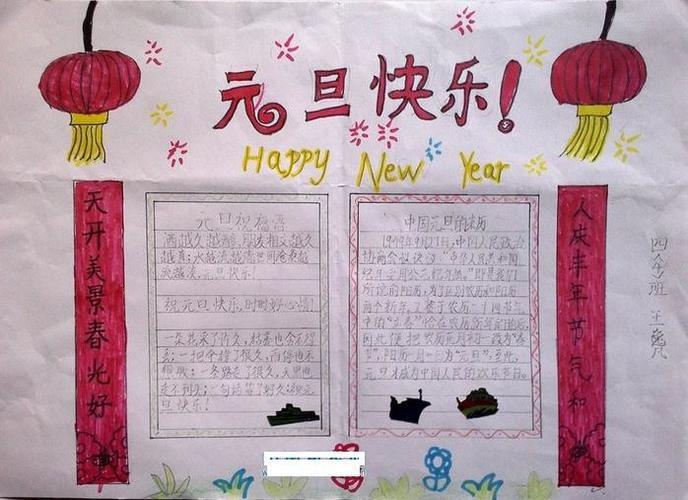 元旦快乐!
Happy New Year
天开美景春光好
元旦祝福语
酒越久越醇,朋友相交越久
越真;水越流越清世间沧桑越
流越淡。元旦快乐!
祝元旦快乐,时时好心情!
一朵花采了许久,枯萎也舍不得
丢;一把伞撑了很久,雨停也不
一条路走了很久,天黑也
走不到头;一句话等了好久:祝元
旦快乐!
中国元旦的来历
1949年9月27日,中国人民政治
协商会议决议:"中华人民共和国
纪年采用公元纪年法。"即是我们
所说的阳历,为了区别农历和阳历
两个新年,又鉴于农历二十四节气
中的"立春"恰在农历新年的前后,
因此便把农历正月初一改为"春
节",阳历一月一日为"元旦",至此,
元旦才成为中国人民的欢乐节日。
人庆丰年节气和
四(4)班 王